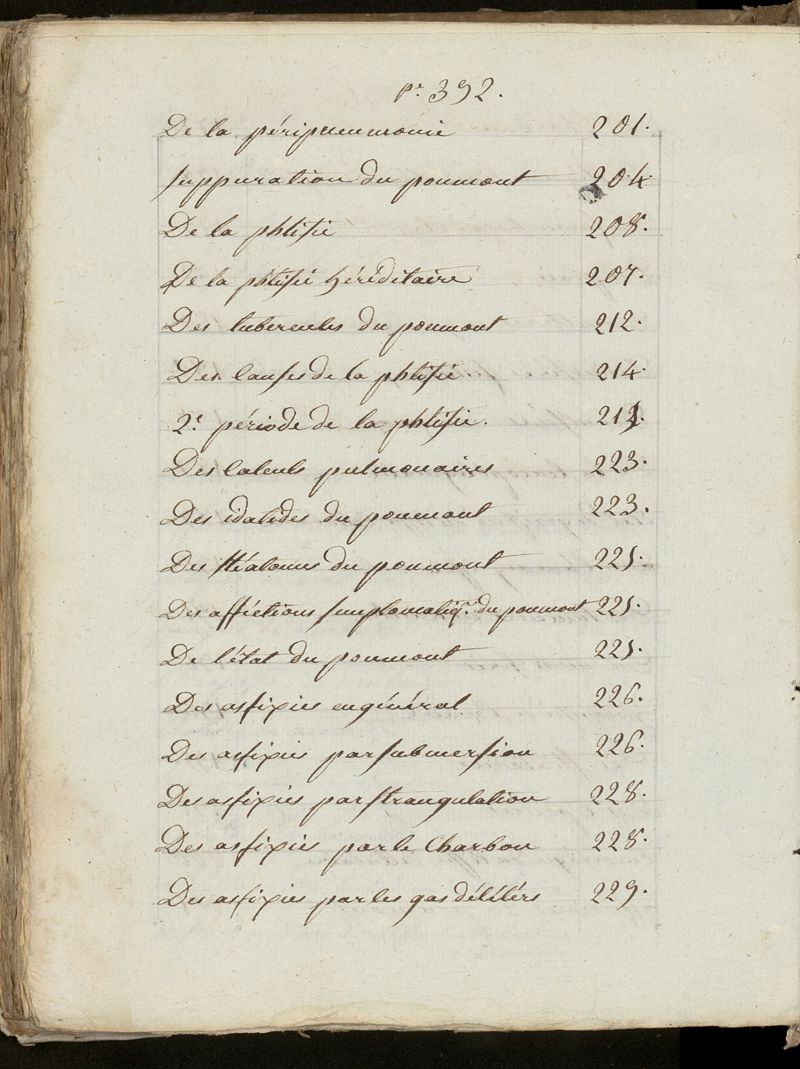 pe. 392.
De la péripneumonie 201.
suppuration du poumont 204
De la phtisie 208.
De la phtisie héréditaire 207.
Des tubercules du poumont 212.
Des causes de la phtisie 214
2e période de la phtisie.
Des calculs pulmonaires 223.
Des idatides du poumont 223.
Des stéatomes du poumont 225.
Des affections simptomatiq. du poumont 225.
De l'état du poumont 225.
Des asfixies en général 226.
Des asfixies par submersion 226.
Des asfixies par strangulation 228.
Des asfixies par le Charbon 228.
Des asfixies par les gas délétérs 229.